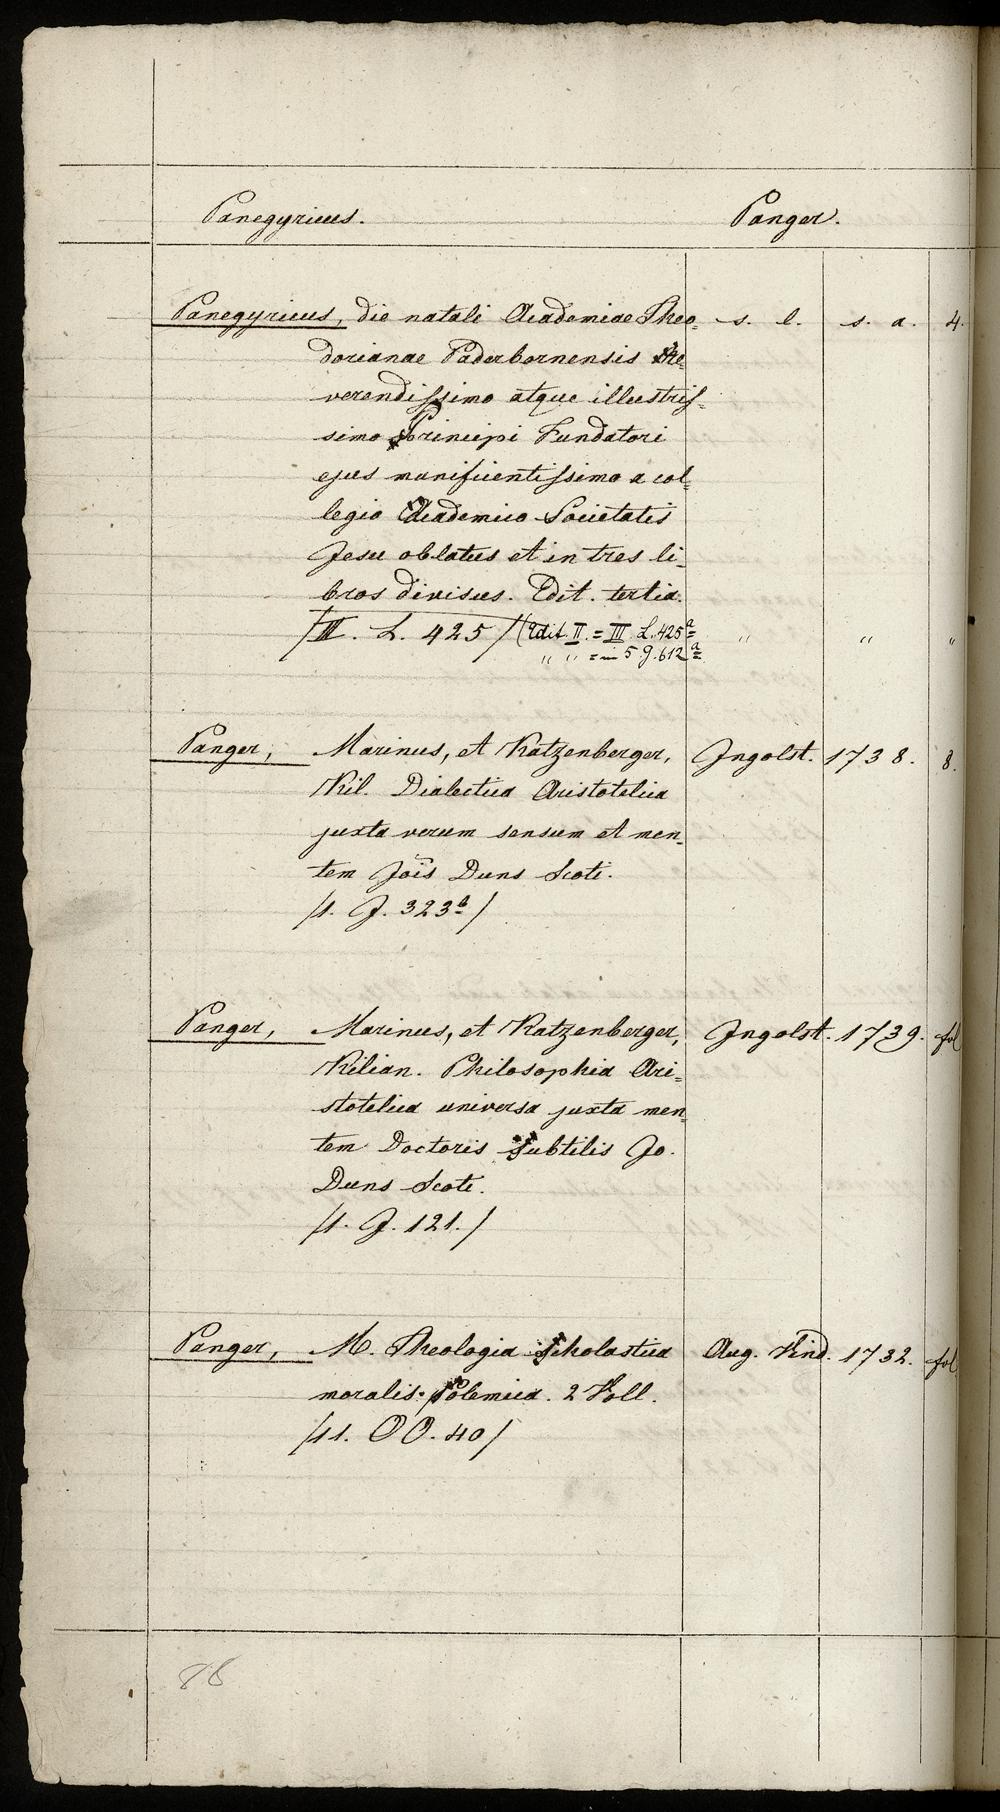 Panegyricus. Panger.
Panegyricus, die natali Academiae Theo- s. l. s. a. 4.
dorianae Paderbornensis Re-
verendissimo atque illustris-
simo Principi Fundatori
ejus munificentissimo a col-
legio Academico Societatis
Jesu oblatus et in tres li-
bros divisus. Edit. tertia.
/III. L. 425/ (Edit. II. = III L. 425a= " " "
" " = in 5. g. 612a=
Panger, Marinus, et Katzenberger, Ingolst. 1738. 8.
Kil. Dialectica Aristotelica
juxta verum sensum et men-
tem Jois Duns Scoti.
/1. J. 323b/
Panger, Marinus, et Katzenberger, Ingolst. 1739. fol
Kilian. Philosophia Ari-
stotelica universa juxta men-
tem Doctoris subtilis Jo.
Duns Scoti.
/1. J. 121./
Panger, M. Theologia scholastica Aug. Vind. 1732. fol
moralis-polemica. 2 Voll.
/11. OO. 40/